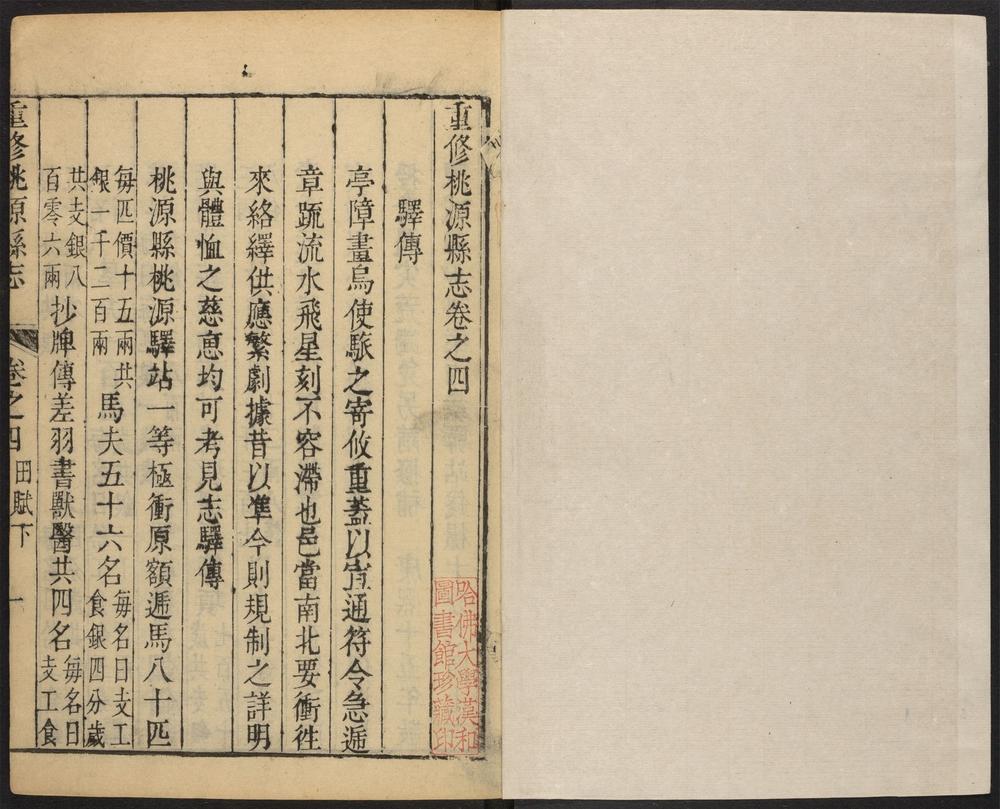 重修桃源縣志卷之四
驛傳
亭障畫烏使駅之寄攸重葢以宣通符令急遞
章疏流水飛星刻不容滯也邑當南北要衝徃
來絡繹供應繁劇據昔以準今則規制之詳明
與體恤之慈恵均可考見志驛傳
桃源縣桃源驛站一等極衝原額遞馬八十匹
每匹價十五兩共
銀一千二百兩
馬夫五十六名
每名日支工
食銀四分歲
共支銀八
百零六兩
抄牌傳差羽書獸醫共四名
每名日
支工食
重修桃源縣志
卷之四
田賦下
一
哈佛大學漢和
圖書館珍藏印